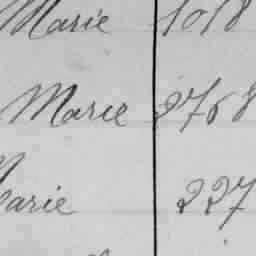 Marie 1018
Marie 2768
Marie 227